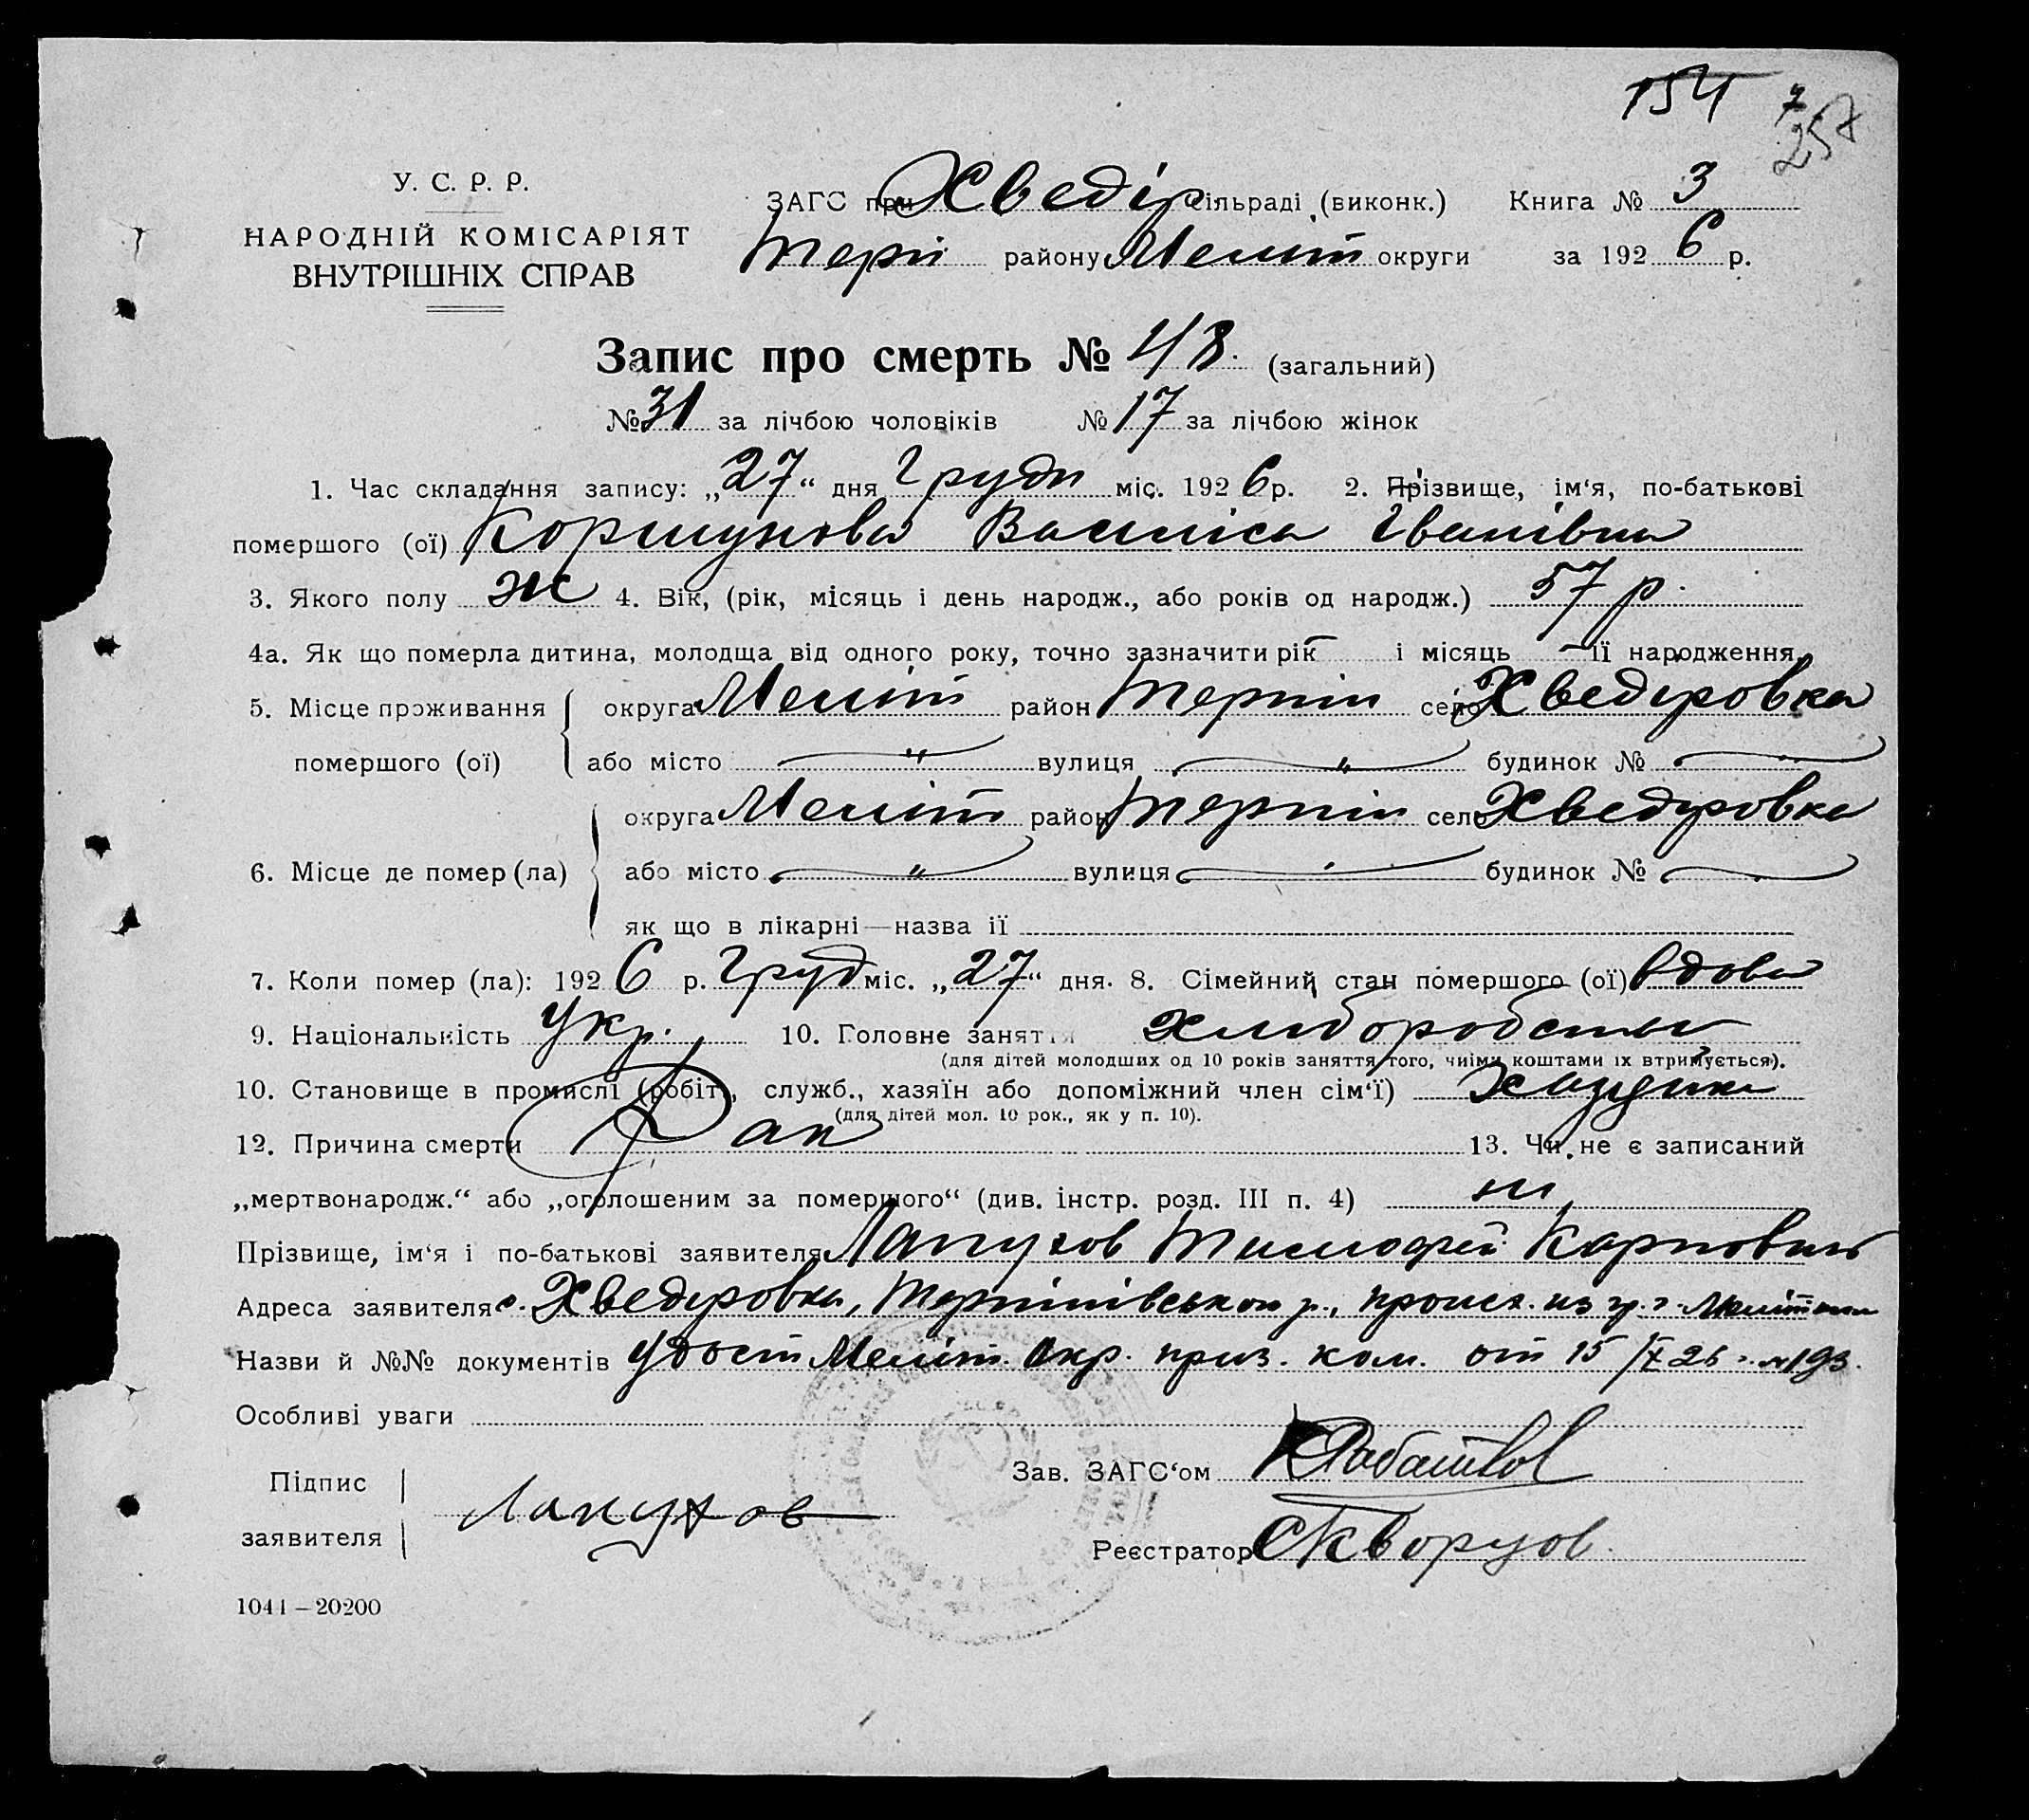 154
257
У. С. Р. Р.
НАРОДНІЙ КОМІСАРІЯТ
ВНУТРІШНІХ СПРАВ
ЗАГС при Хведір. сільраді (виконк.) Книга № 3
Терп району Меліт округи за 1926 р.
Запис про смерть № 48. (загальний)
№ 31 за лічбою чоловіків № 17 за лічбою жінок
1. Час складання запису: „27“ дня Грудн міс. 1926 р. 2. Прізвище, ім‘я, по-батькові
помершого (ої) Коршунова Василіса Іванівна
3. Якого полу ж 4. Вік, (рік, місяць і день народж., або років од народж.) 57 р.
4а. Як що померла дитина, молодща від одного року, точно зазначити рік – і місяць – її народження
5. Місце проживання помершого (ої) округа Меліт район Терпін село Хведировка
або місто „ вулиця „ будинок №
6. Місце де помер (ла) округа Меліт район Терпін село Хведировка
або місто „ вулиця будинок №
як що в лікарні—назва ії
7. Коли помер (ла): 1926 р. Груд міс. „27“ дня. 8. Сімейний стан помершого (ої) вдова
9. Національність Укр. 10. Головне заняття
(для дітей молодших од 10 років заняття того, чиїми коштами їх втримується).
10. Становище в промислі (робіт., служб., хазяїн або допоміжний член сім‘ї)
(для дітей мол. 10 рок., як у п. 10).
12. Причина смерти Рак 13. Чи не є записаний
„мертвонародж.“ або „оголошеним за помершого“ (див. інстр. розд. III п. 4) ні
Прізвище, ім‘я і по-батькові заявителя Лапухов Тимофей Карпович
Адреса заявителя с. Хведировка, Терпінівського р., происх. из гр. г.
Назви й №№ документів Удост Меліт. Окр. приз. ком. от 15/IX 26 г. № 193.
Особливі уваги
Зав. ЗАГС‘ом
Підпис заявителя Лапухов
Реєстратор Скворцов.
1041—20200